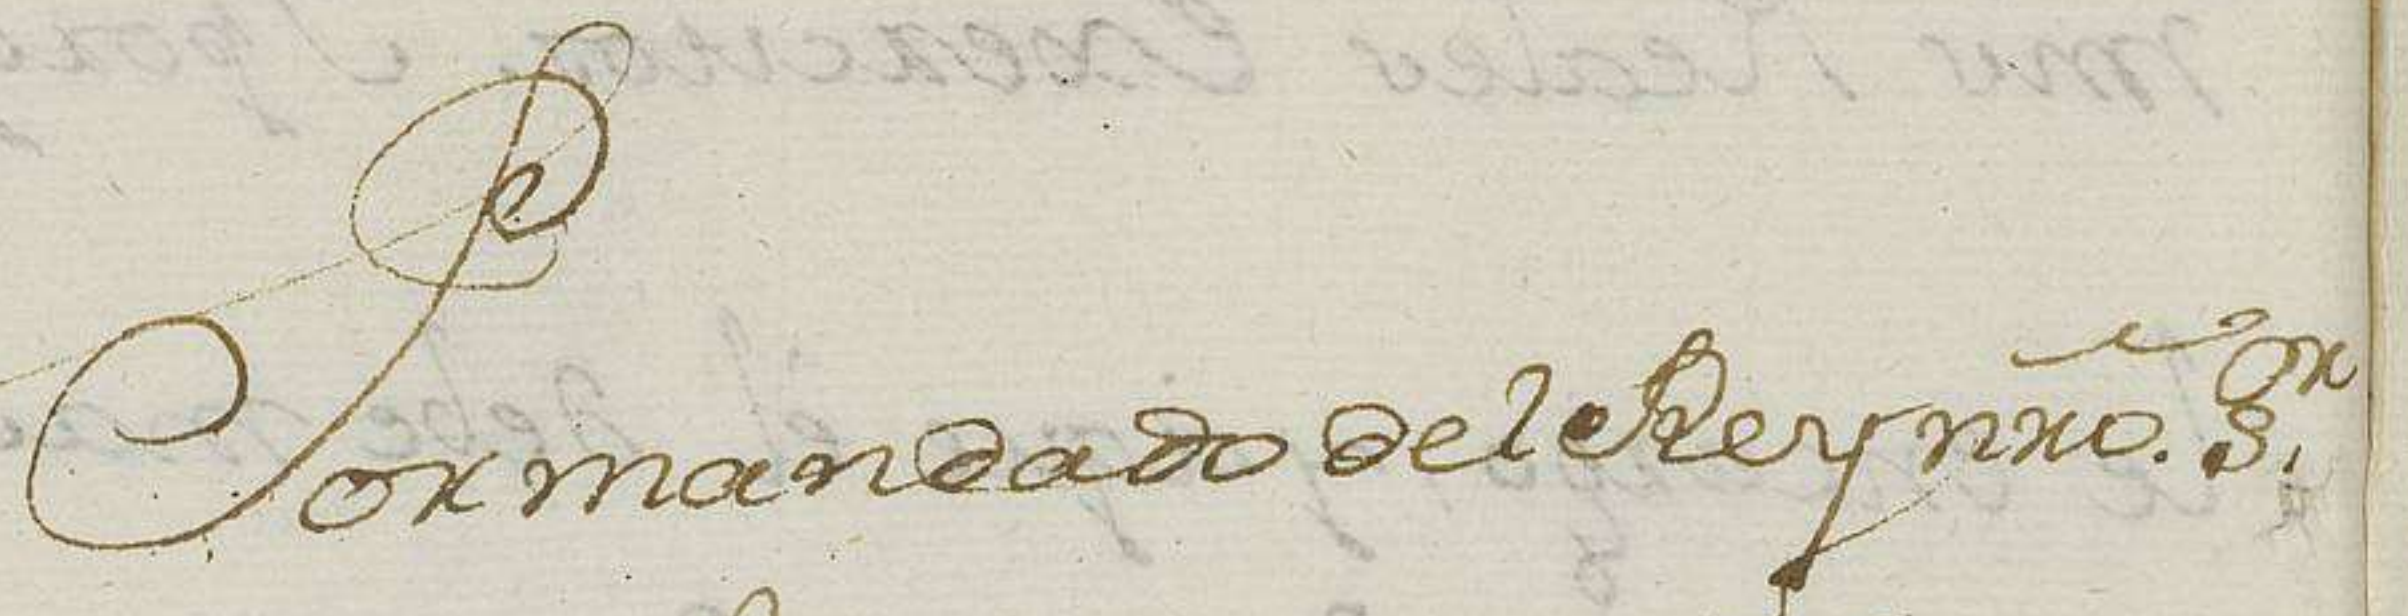 Por mandado del Rey nro. S.or